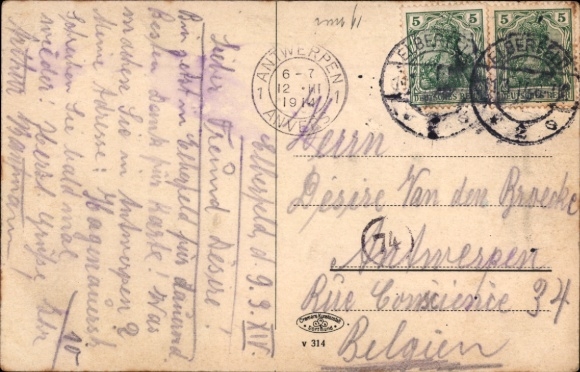 Elberfeld, d. 9. 3. XIV.
Lieber Freund Désiré!
Bin jetzt in Elberfeld für dauernd.
Besten Dank für Karte! Was
machen Sie in Antwerpen?
Meine Adresse: Hagenauerst.
10
Schreiben Sie bald mal
wieder! Herzl. Grüße, Ihr
Arthur
ANTWERPEN
6 - 7
12 III
1914
1 1
ANVERS
5 5
ELBERFELD
ELBERFELD
Herrn
Désiré Van den Broecke
74
Antwerpen
Rue Conscience 34
Belgien
Cramers Kunstanstalt
Dortmund
v 314